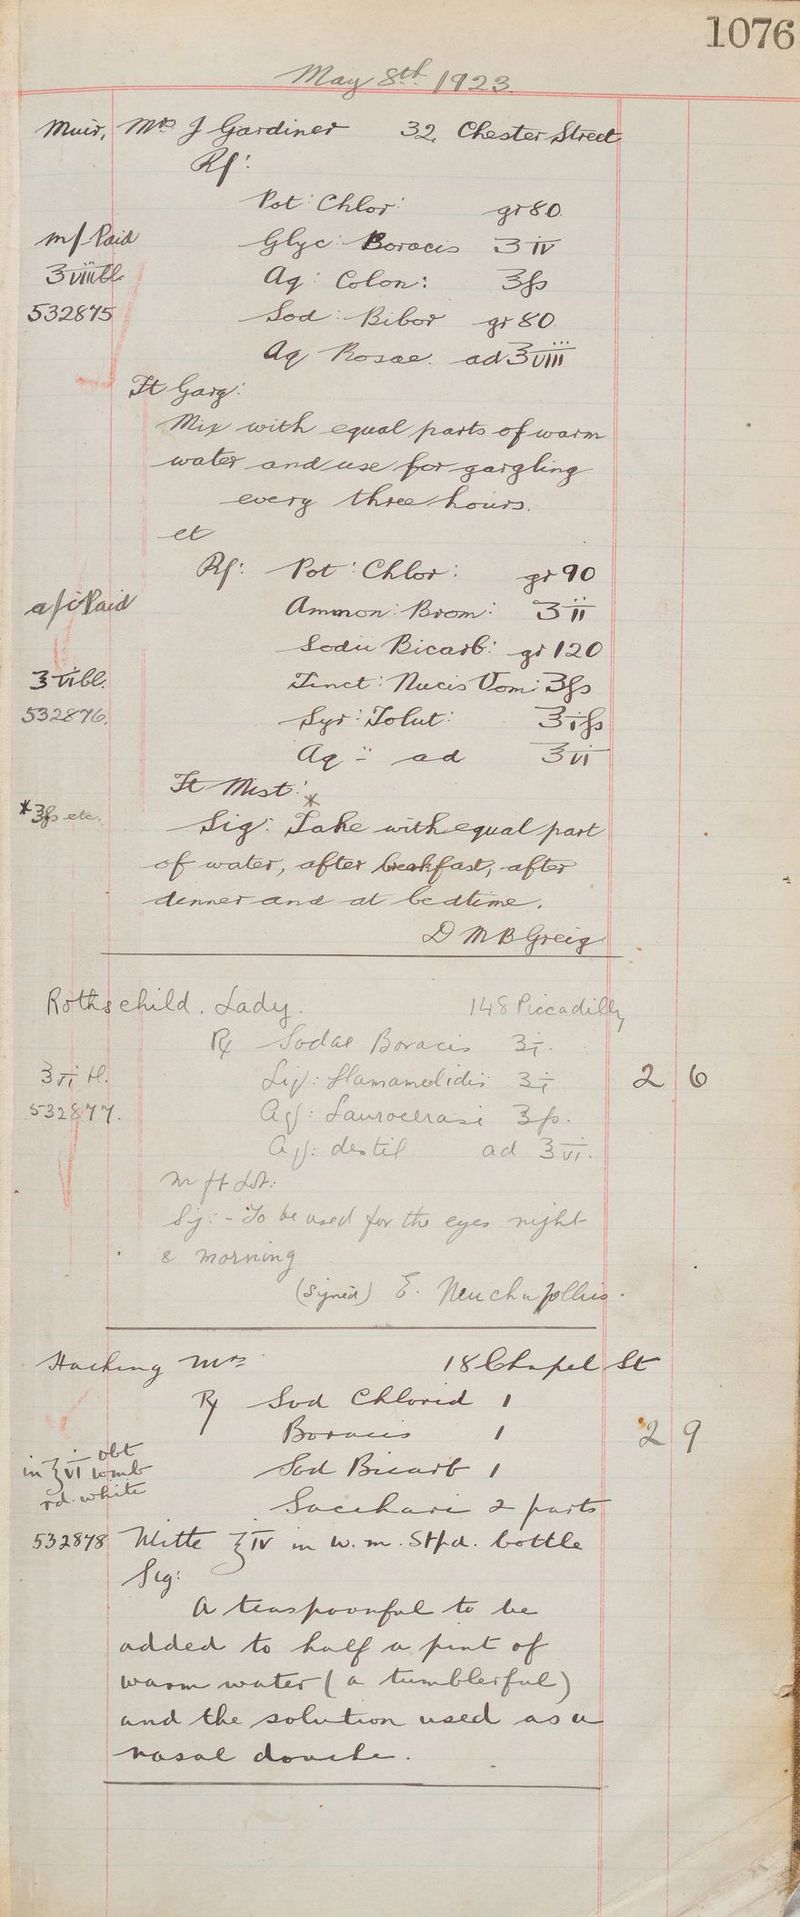 1076
May 8th 1923.
Muir, Mrs J Gardiner 32, Chester Street
Rf:
Pot: Chlor: gr 80.
m/ Paid Glyc: Boracis ʒ iv
ʒ viii bl. Aq: Colon: ʒ fs
532875 Sod: Bibor gr 80.
Aq Rosae. ad ʒ viii
Ft Garg:
Mix with equal parts of warm
water and use for gargling
every three hours.
et
Rf: Pot: Chlor: gr 90
a/c Paid Ammon: Brom: ʒ ii
Sodii Bicarb: gr 120
ʒ vi bl. Tinct: Nucis Vom: ʒ fs
532876. Syr: Tolut: ʒ i fs
Aq: ad ʒ vi
Ft Mist:
*ʒ fs etc. Sig: *Take with equal part
of water, after breakfast, after
dinner and at bedtime.
D M B Greig
Rothschild. Lady. 148 Piccadilly
Rx Sodae Boracis ʒ i.
ʒ vi bl. Liq: Hamamelidis ʒ i 2 6
532877. Aq: Laurocerasi ʒ fs.
Aq: destil ad ʒ vi.
m ft Lot:
Sig: - To be used for the eyes night
& morning
(signed) E.
Hacking Mrs 18 Chapel St
Rx Sod Chlorid 1
Boracis 1 2 9
in ʒ vi obt
womb Sod Bicarb 1
rd. white
Sacchari 2 parts
532878 Mitte ʒ iv in w. m. Stpd. bottle
Sig:
A teaspoonful to be
added to half a pint of
warm water (a tumblerful)
and the solution used as a
nasal douche.